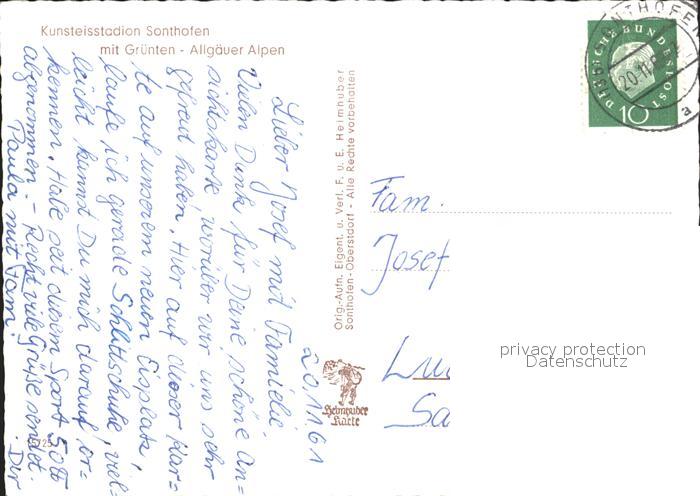 Kunsteisstadion Sonthofen
mit Grünten - Allgäuer Alpen
20.11.61
Lieber Josef mit Familie!
Vielen Dank für Deine schöne An=
sichtskarte worüber wir uns sehr
gefreut haben. Hier auf dieser Kar=
te auf unserem neuen Eisplatz,
laufe ich gerade Schlittschuhe, viel=
leicht kannst Du mich darauf er=
kennen. Habe seit diesem Sport 5 ℔
abgenommen. - Recht viele Grüße sendet Dir
Paula mit Fam.
Orig.-Aufn. Eigent. u. Verl. F. u. E. Heimhuber
Sonthofen-Oberstdorf - Alle Rechte vorbehalten
Heimhuber
Karte
SONTHOFEN
20.11.
a
DEUTSCHE BUNDESPOST
10
Fam.
Josef
privacy protection
Datenschutz